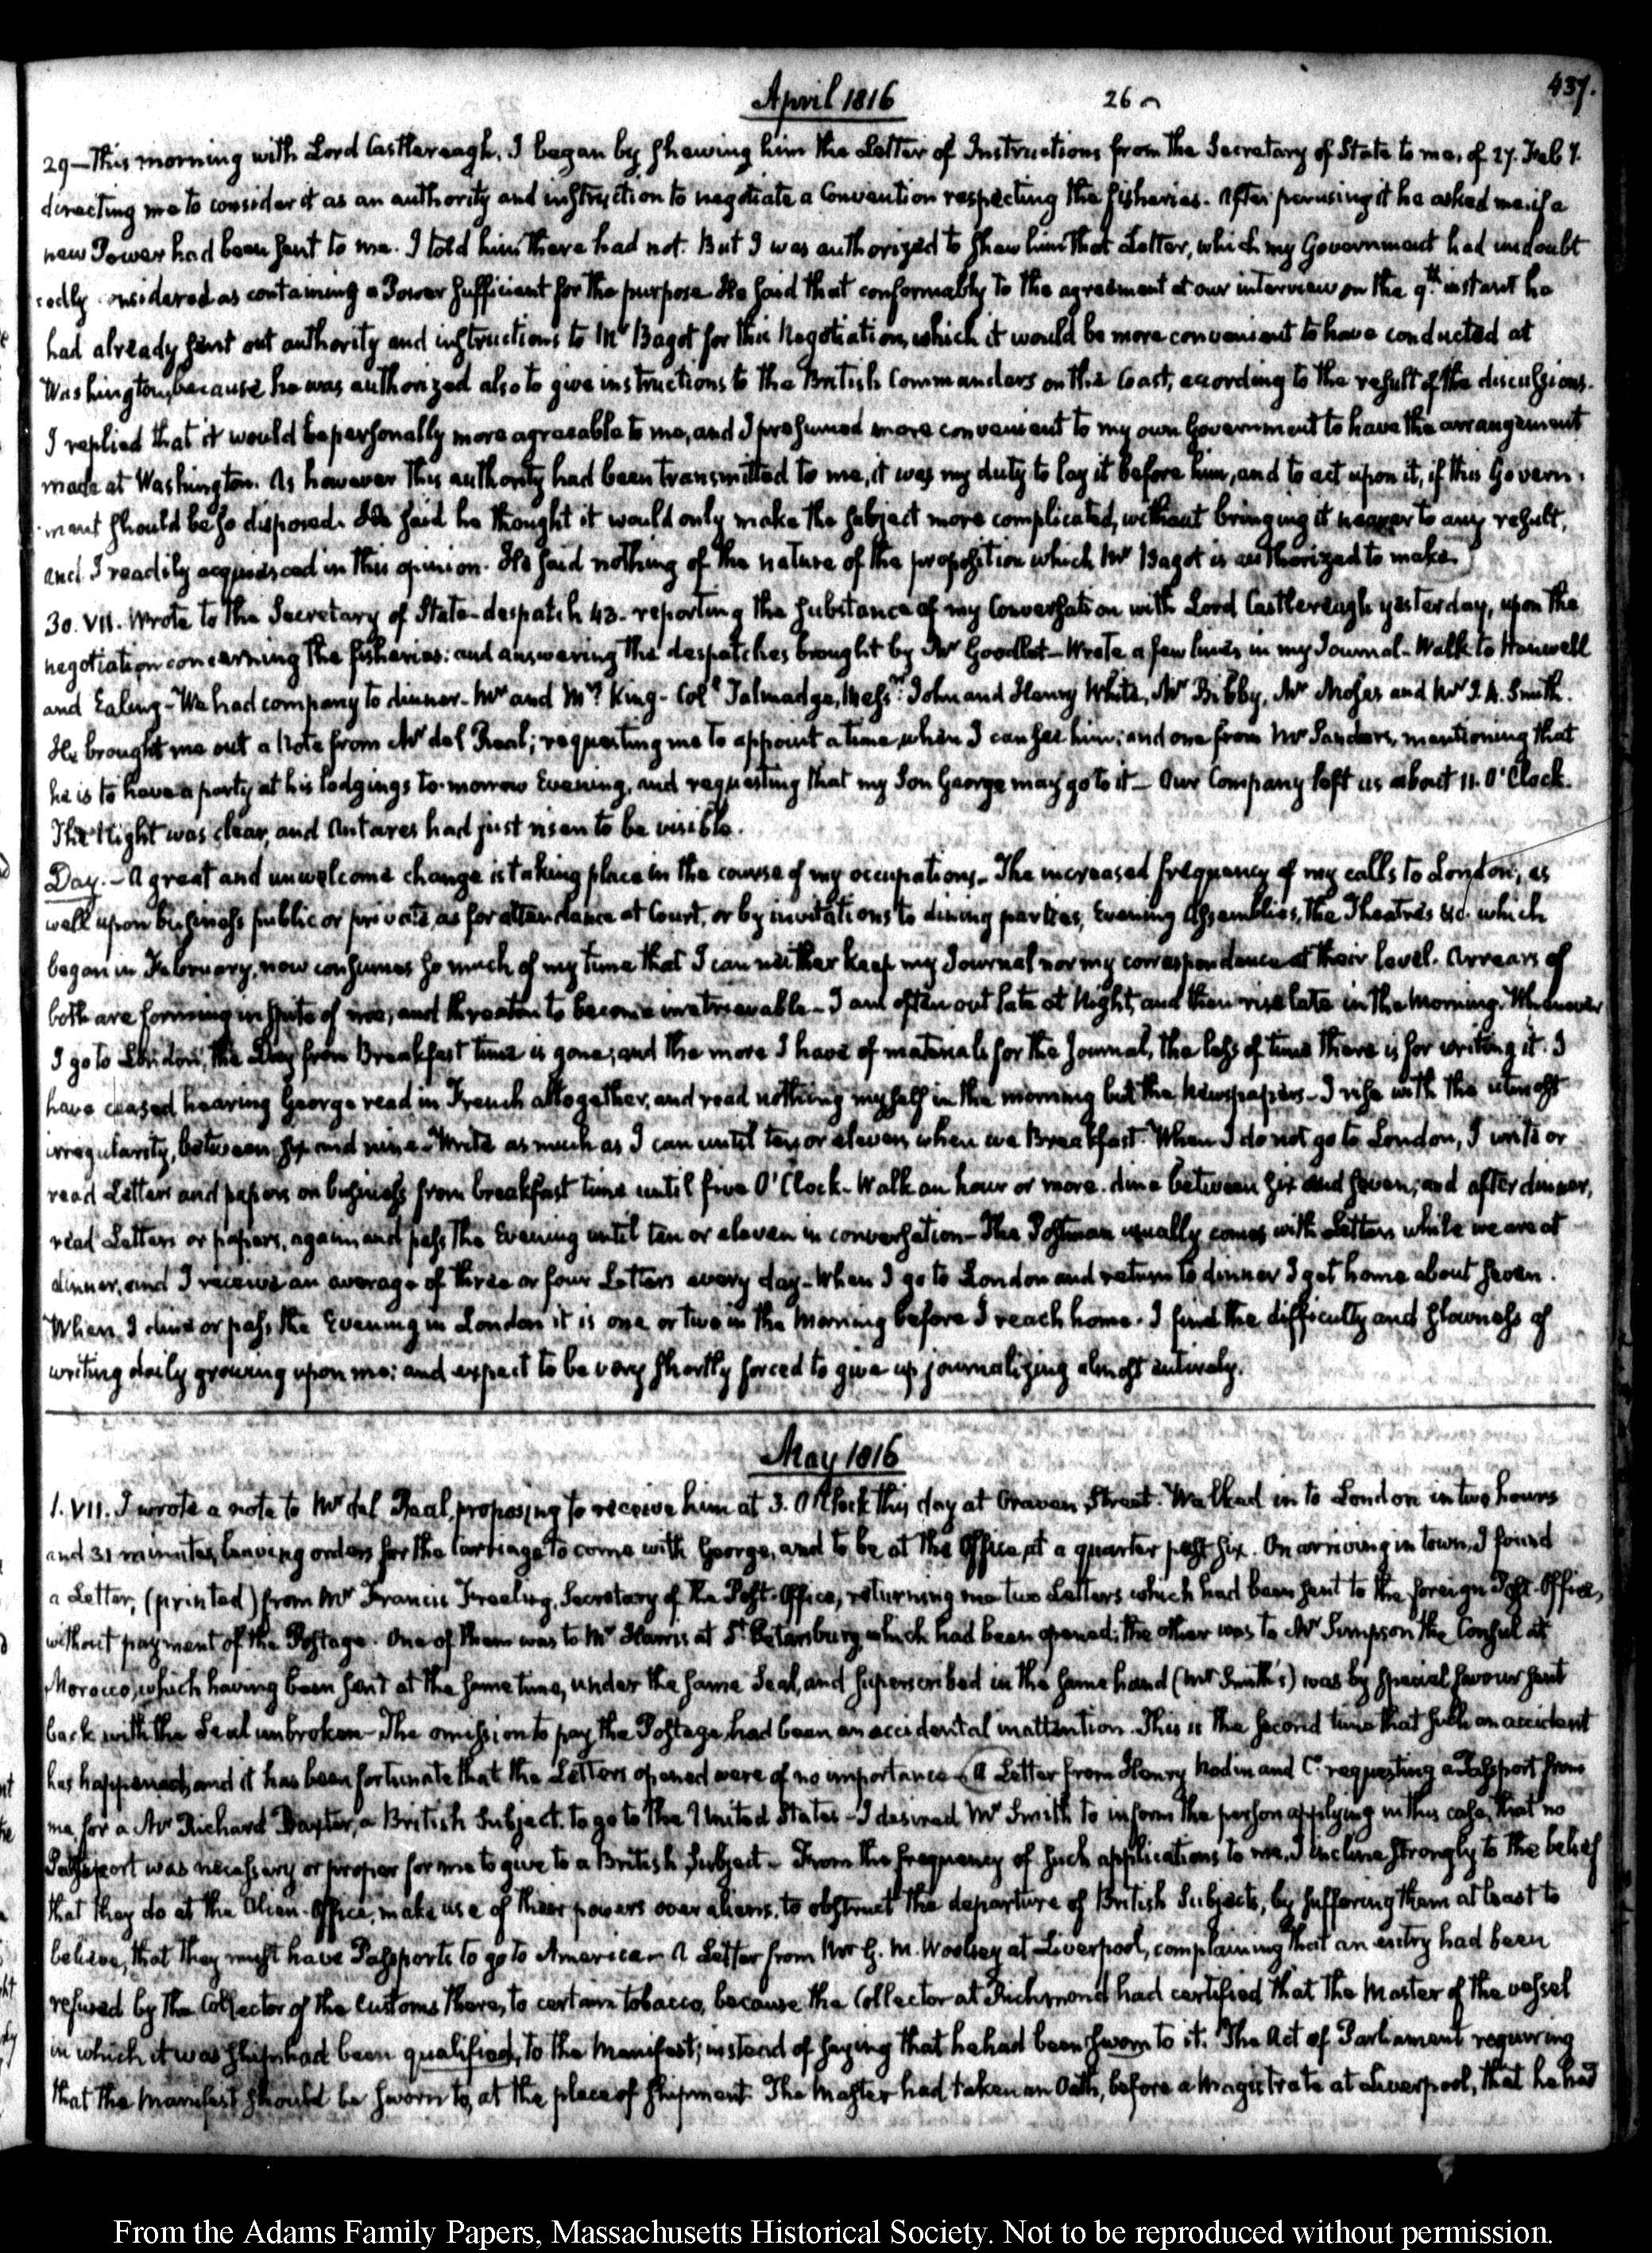 April 1816
26
437.
29—This morning with Lord Castlereagh. I began by shewing him the Letter of Instructions from the Secretary of State to me, of 27. Feby.
directing me to consider it as an authority and instruction to negotiate a Convention respecting the fisheries. After perusing it he asked me if a
new Power had been sent to me. I told him there had not. But I was authorized to shew him that Letter, which my Government had undoubt
edly considered as containing a Power sufficient for the purpose. He said that conformably to the agreement at our interview on the 9th instant he
had already sent out authority and instructions to Mr Bagot for this Negotiation, which it would be more convenient to have conducted at
Washington, because he was authorized also to give instructions to the British Commanders on the Coast, according to the result of the discussions.
I replied that it would be personally more agreeable to me, and I presumed more convenient to my own Government to have the arrangement
made at Washington. As however this authority had been transmitted to me, it was my duty to lay it before him, and to act upon it, if this Govern-
-ment should be so disposed. He said he thought it would only make the subject more complicated, without bringing it nearer to any result,
and I readily acquiesced in this opinion. He said nothing of the nature of the proposition which Mr Bagot is authorized to make.
30. VII. Wrote to the Secretary of State—despatch 43. reporting the substance of my Conversation with Lord Castlereagh yesterday, upon the
negotiation concerning the fisheries: and answering the despatches brought by Mr Goodlet—Wrote a few lines in my Journal—Walk to Hanwell
and Ealing—We had company to dinner. Mr and Mrs King—Coll Talmadge, Messrs John and Henry White, Mr Bibby, Mr Moses and Mr J. A. Smith.
He brought me out a Note from Mr del Real; requesting me to appoint a time, when I can see him; and one from Mr Sanders, mentioning that
he is to have a party at his lodgings to-morrow Evening, and requesting that my Son George may go to it—Our Company left us about 11. O'Clock.
The Night was clear, and Antares had just risen to be visible.
Day.—A great and unwelcome change is taking place in the course of my occupations—The increased frequency of my calls to London, as
well upon business public or private, as for attendance at Court, or by invitations to dining parties, Evening Assemblies, the Theatres &c. which
began in February, now consumes so much of my time that I can neither keep my Journal nor my correspondence at their level. Arrears of
both are forming in spite of me, and threaten to become irretrievable—I am often out late at Night, and then rise late in the Morning. Whenever
I go to London, the Day from Breakfast time is gone; and the more I have of materials for the Journal, the less of time there is for writing it. I
have ceased hearing George read in French altogether, and read nothing myself in the morning but the Newspapers—I rise with the utmost
irregularity, between six and nine—Write as much as I can until ten or eleven when we Breakfast. When I do not go to London, I write or
read Letters and papers on business from breakfast time until five O'Clock—Walk an hour or more. dine between six and seven; and after dinner,
read Letters or papers, again and pass the Evening until ten or eleven in conversation—The Postman usually comes with Letters while we are at
dinner, and I receive an average of three or four Letters every day—When I go to London and return to dinner I get home about seven.
When I dine or pass the Evening in London it is one or two in the Morning before I reach home. I find the difficulty and slowness of
writing daily growing upon me; and expect to be very shortly forced to give up journalizing almost entirely.
May 1816
1. VII. I wrote a note to Mr del Real, proposing to receive him at 3. O'Clock this day at Craven Street. Walked in to London in two hours
and 31 minutes, leaving orders for the Carriage to come with George, and to be at the Office at a quarter past six. On arriving in town, I found
a Letter, (printed) from Mr Francis Freeling, Secretary of the Post-Office, returning me two Letters which had been sent to the foreign Post-Office,
without payment of the Postage. One of them was to Mr Harris at St Petersburg, which had been opened; the other was to Mr Simpson the Consul at
Morocco, which having been sent at the same time, under the same Seal, and superscribed in the same hand (Mr Smith's) was by special favour sent
back with the Seal unbroken—The omission to pay the Postage, had been an accidental inattention. This is the second time that such an accident
has happened, and it has been fortunate that the Letters opened were of no importance—A Letter from Henry Nadin and Co requesting a Passport from
me for a Mr Richard Baxter, a British Subject, to go to the United States—I desired Mr Smith to inform the person applying in this case, that no
Passport was necessary or proper for me to give to a British Subject—From the frequency of such applications to me, I incline strongly to the belief
that they do at the Alien-Office, make use of their powers over aliens, to obstruct the departure of British Subjects, by suffering them at least to
believe, that they must have Passports to go to America—A Letter from Mr G. M. Woolsey at Liverpool, complaining that an entry had been
refused by the Collector of the Customs there, to certain tobacco, because the Collector at Richmond had certified that the Master of the vessel
in which it was shipped had been qualified, to the Manifest; instead of saying that he had been sworn to it. The Act of Parliament requiring
that the Manifest should be sworn to, at the place of shipment. The Master had taken an Oath, before a Magistrate at Liverpool, that he had
From the Adams Family Papers, Massachusetts Historical Society. Not to be reproduced without permission.